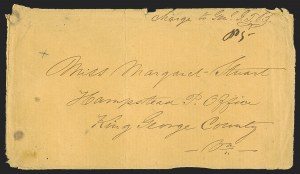 Charge to
Miss Margaret Stuart
Hampstead P. Office
King George County
Va